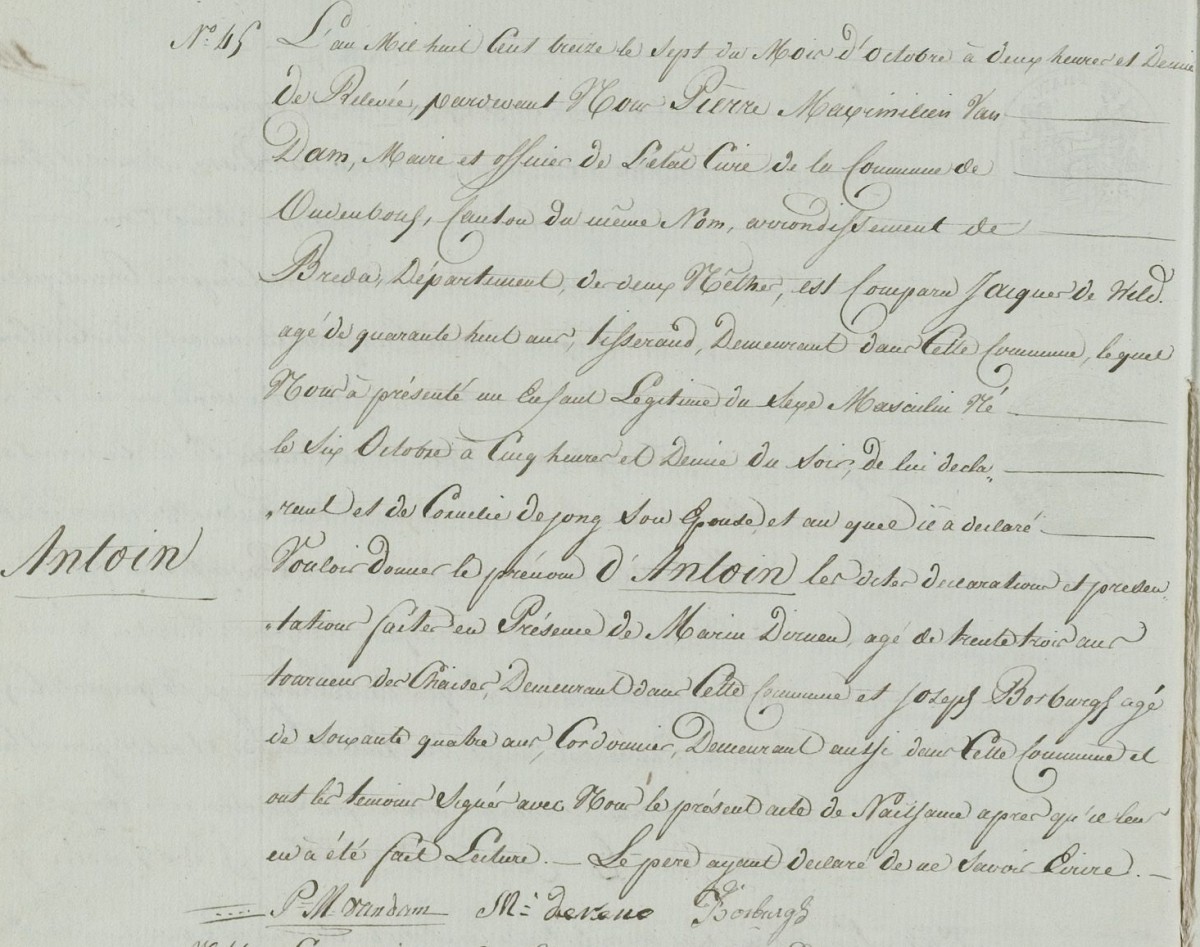 No 45 L'an Mil huit Cent treize le sept du Mois d'Octobre à deux heures et Demie
de Relevée, pardevant Nous Pierre Maximilien Van
Dam, Maire et officier de L'etât Civie de la Commune de
Oudenbosch, Canton du même Nom, arrondissement de
Breda, Département, des deux Nêthes, est Comparu Jacques de Wild.
agé de quarante huit ans, tisserand, Demeurant dans Cette Commune, lequel
Nous à présenté un Enfant Legitime du Sexe Masculin Né
le Six Octobre à Cinq heures et Demie du Soir, de lui decla,,
,,rant et de Cornelie de jong Son Epouse, et au quel il à declaré
Antoin
Vouloir Donner le prénom d'Antoin les dites declarations et presen,,
,,tations faites en Présence de Marin, agé de trente trois ans
tourneur des Chaises, Demeurant dans Cette Commune et Joseph Borburgh agé
de Soixante quatre ans, Cordonnier, Demeurant aussi dans Cette Commune et
ont les temoins Signés avec Nous le présent acte de Naissance apres qu'il leur
en à été fait Lecture. — Le pere ayant declaré de ne Savoir Ecrire. —
P. M. van dam M: Borburgh